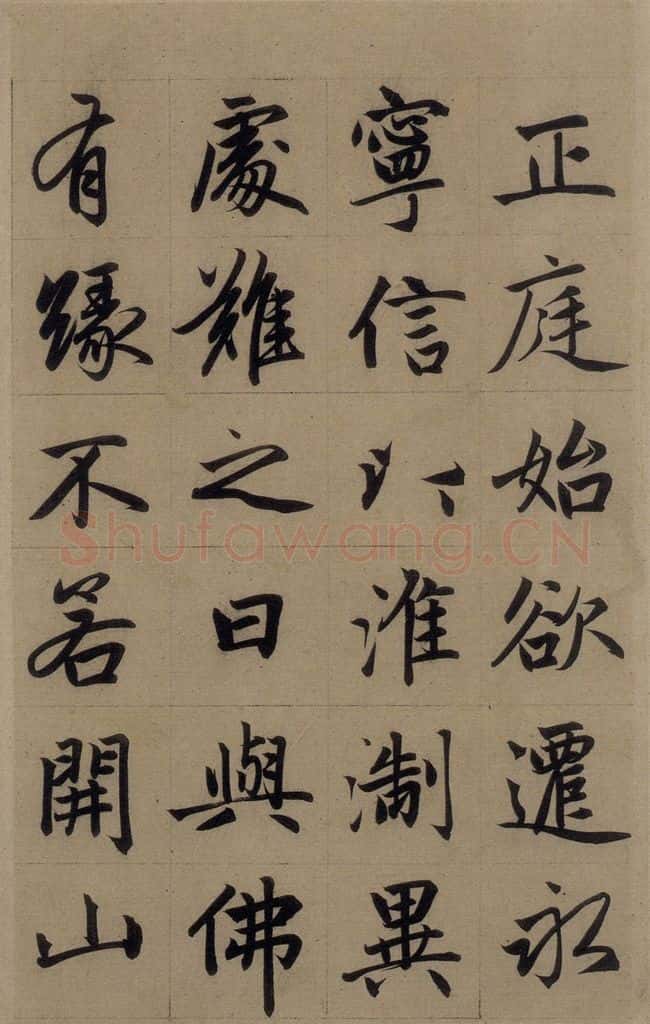 正庭始欲遷永
寧信淮淛異
處難之曰與佛
有緣不若開山
Shufawang.CN